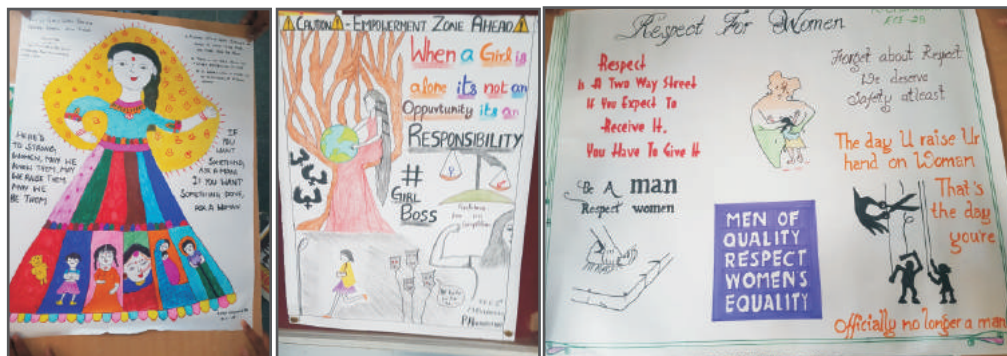 HERE'S
TO STRONG
WOMEN, MAY WE
KNOW THEM, MAY
WE RAISE THEM
MAY WE
BE THEM
IF
YOU
WANT
SOMETHING,
ASK A MAN
IF YOU WANT
SOMETHING DONE,
ASK A WOMAN.
CAUTION - EMPOWERMENT ZONE AHEAD
When a Girl is
alone it's not an
Opportunity its an
RESPONSIBILITY
#
GIRL
BOSS
Respect For Women
Respect
Is A Two Way Street
If You Expect To
Receive It.
You Have To Give It
Forget about Respect
We deserve
Safety atleast
Be A man
Respect women
MEN OF
QUALITY
RESPECT
WOMEN'S
EQUALITY
The day U raise Ur
hand on Woman
That's
the day
you're
Officially no longer a man